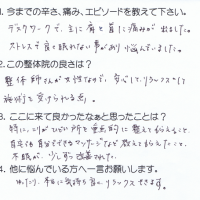 1. 今までの辛さ、痛み、エピソードを教えて下さい。
デスクワークで、主に肩と首に痛みが出ました。
ストレスで良く眠れない事があり悩んでいました。
2.この整体院の良さは？
整体師さんが女性なので、安心してリラックスして
施術を受けられる点。
3. ここに来て良かったなぁと思ったことは？
特に、こりがひどい所を重点的に整えてもらえること
自宅でも自分でできるマッサージなど教えてもらえたこと、
不眠が、少しずつ改善された。
4. 他に悩んでいる方へ一言お願いします。
ゆったり、本当に気持ち良く、リラックスできます。